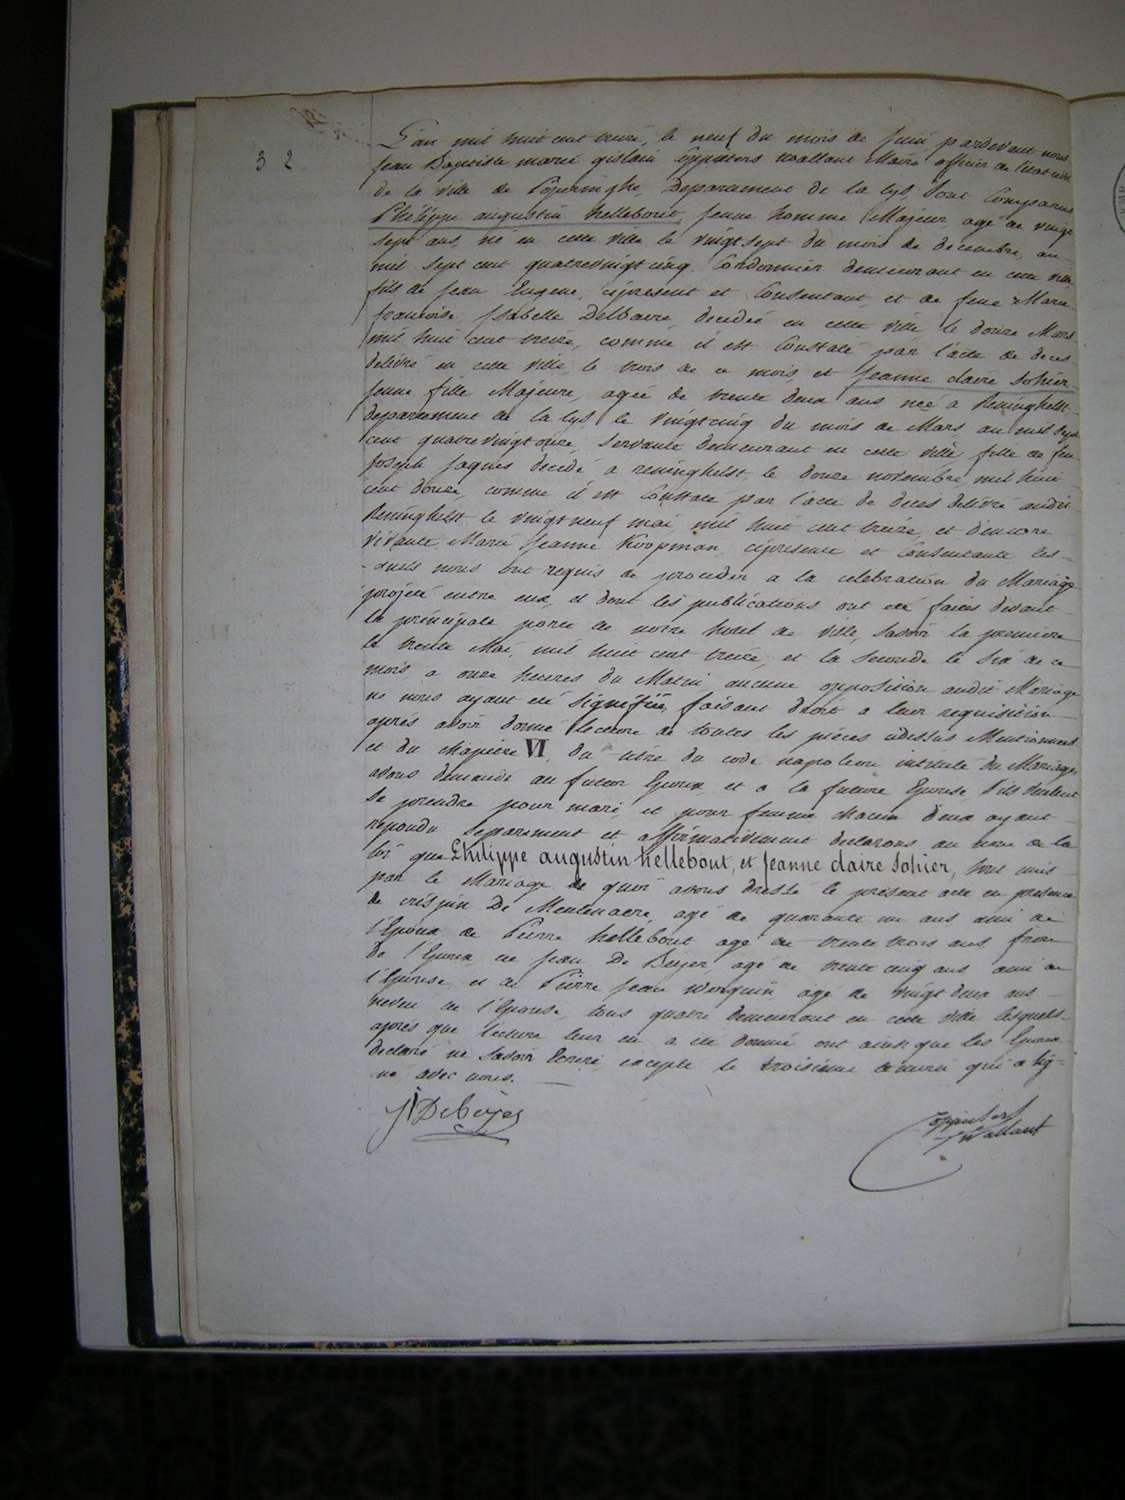 32
L'an mil huit cent treize, le neuf du mois de Juin pardevant nous
Jean Baptiste marie gislain wallant Maire officier de l'etat civil
de la ville de Poperinghe, Departement de la Lys sont Comparus
Philippe augustin hellebout, Jeune homme Majeur, agé de vingt
sept ans, né en cette ville le vingt sept du mois de decembre, an
mil sept cent quatrevingt cinq, Cordonnier demeurant en cette ville
fils de Jean Eugene, cipresent et Consentant, et de feue Marie
francoise Isabelle Delbaere, decedée en cette ville le douze Mars
mil huit cent treize, comme il est Constaté par l'acte de deces
delivré en cette ville le trois de ce mois, et Jeanne claire Sohier
Jeune fille Majeure, agée de trente deux ans née a Reninghelst
departement de la Lys, le vingtcinq du mois de Mars an mil sept
cent quatrevingt, servante demeurant en cette ville, fille de feu
Joseph Jaques decedé a reninghelst le douze novembre mil huit
cent douze, comme il est Constaté par l'acte de deces delivré audit
Reninghelst le vingt neuf mai mil huit cent treize, et d'encore
vivante Marie Jeanne Koopman, cipresente et Consentante les-
-quels nous ont requis de proceder a la celebration du Mariage
projeté entre eux, et dont les publications ont eté faites devant
la principale porte de notre hotel de ville, Savoir la premiere
le trente Mai, mil huit cent treize, et la Seconde le six de ce
mois a onze heures du Matin aucune opposition audit Mariage
ne nous ayant eté signifiée, faisant droit a leur requisition
apres avoir donné lecture de toutes les pieces cidessus Mentionnées
et du chapitre VI, du titre du code napoleon intitulé du Mariage
avons demandé au futur Epoux, et a la future Epouse, s'ils veulent
se prendre pour mari, et pour femme chacun d'eux ayant
repondu separement et affirmativement declarons au nom de la
loi que Philippe augustin hellebout, et Jeanne claire Sohier, sont unis
par le Mariage de quoi avons dressé le present acte en presence
de crespin De Meulenaere, agé de quarante un ans ami de
l'Epoux, de Pierre hellebout agé de trente trois ans frere
de l'Epoux, de Jean De Beyer, agé de trente cinq ans ami de
l'Epouse, et de Pierre Jean Werquin agé de vingt deux ans
neveu de l'Epouse, tous quatre demeurant en cette ville lesquels
apres que lecture leur en a eté donné ont ainsi que les Epoux
declaré ne savoir Ecrire excepté le troisieme temoin qui a sig-
né avec nous.
J De beyer
wallant